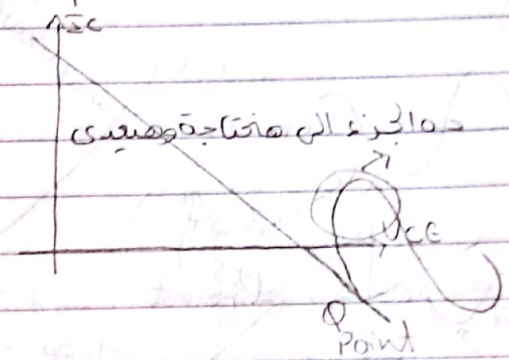 Ic
ده الجزء الى هنحتاجة وهيعدى
VCE
Q
Point